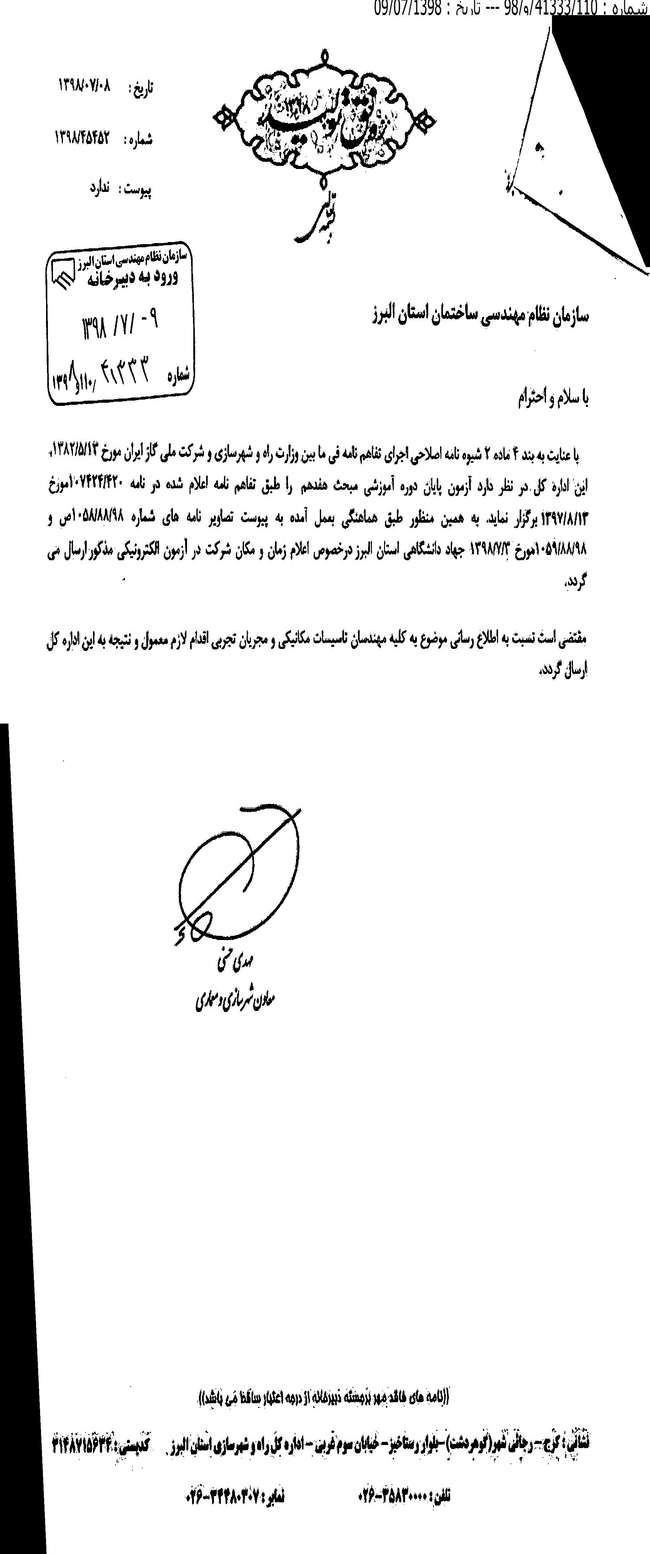 شماره : 98/و/41333/110 --- تاریخ : 09/07/1398
تاریخ : ۱۳۹۸/۰۷/۰۸
شماره : ۱۳۹۸/۴۵۴۵۲
پیوست : ندارد
رونق تولید
۱۳۹۸
بسمه تعالی
سازمان نظام مهندسی استان البرز
ورود به دبیرخانه
۱۳۹۸ /۷/ -۹
شماره ۴۱۳۳۳/۱۱۰/و/۱۳۹۸
سازمان نظام مهندسی ساختمان استان البرز
با سلام و احترام
با عنایت به بند ۴ ماده ۲ شیوه نامه اصلاحی اجرای تفاهم نامه فی ما بین وزارت راه و شهرسازی و شرکت ملی گاز ایران مورخ ۱۳۸۲/۵/۱۳،
این اداره کل در نظر دارد آزمون پایان دوره آموزشی مبحث هفدهم را طبق تفاهم نامه اعلام شده در نامه ۱۰۷۴۲۴/۴۲۰مورخ
۱۳۹۷/۸/۱۳ برگزار نماید. به همین منظور طبق هماهنگی بعمل آمده به پیوست تصاویر نامه های شماره ۱۰۵۸/۸۸/۹۸ص و
۱۰۵۹/۸۸/۹۸مورخ ۱۳۹۸/۷/۳ جهاد دانشگاهی استان البرز درخصوص اعلام زمان و مکان شرکت در آزمون الکترونیکی مذکور ارسال می
گردد.
مقتضی است نسبت به اطلاع رسانی موضوع به کلیه مهندسان تاسیسات مکانیکی و مجریان تجربی اقدام لازم معمول و نتیجه به این اداره کل
ارسال گردد.
مهدی حسنی
معاون شهرسازی و معماری
((نامه های فاقد مهر برجسته دبیرخانه از درجه اعتبار ساقط می باشد))
نشانی : کرج – رجائی شهر(گوهردشت)–بلوار رستاخیز – خیابان سوم غربی – اداره کل راه و شهرسازی استان البرز کدپستی : ۳۱۴۸۷۱۵۶۳۴
تلفن : ۳۵۸۳۰۰۰۰–۰۲۶ نمابر : ۳۴۴۸۰۳۰۷–۰۲۶